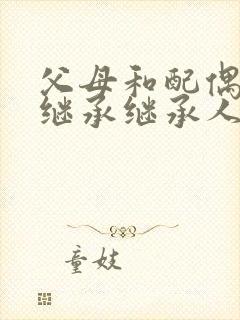 父母和配偶
继承继承人
童妓